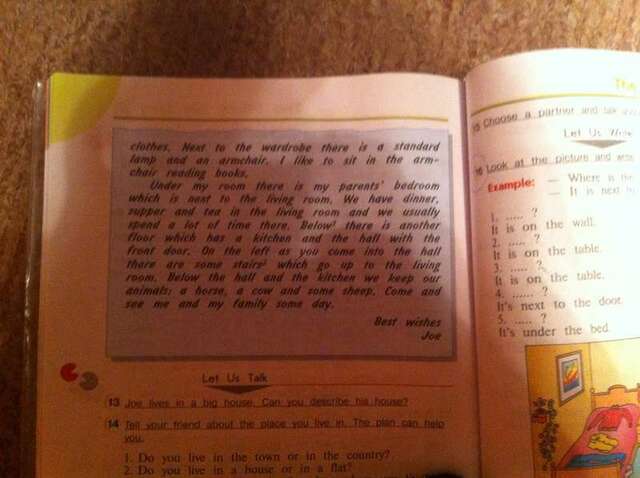 clothes. Next to the wardrobe there is a standard
lamp and an armchair. I like to sit in the arm-
chair reading books.
Under my room there is my parents' bedroom
which is next to the living room. We have dinner,
supper and tea in the living room and we usually
spend a lot of time there. Below¹ there is another
floor which has a kitchen and the hall with the
front door. On the left as you come into the hall
there are some stairs² which go up to the living
room. Below the hall and the kitchen we keep our
animals: a horse, a cow and some sheep. Come and
see me and my family some day.
Best wishes
Joe
Let Us Talk
13 Joe lives in a big house. Can you describe his house?
14 Tell your friend about the place you live in. The plan can help
you.
1. Do you live in the town or in the country?
2. Do you live in a house or in a flat?
The
15 Choose a partner and
Let Us Write
16 Look at the picture and
Example: — Where is the
— It is next
1. ..... ?
It is on the wall.
2. ..... ?
It is on the table.
3. ..... ?
It is on the table.
4. ...... ?
It's next to the door.
5. ..... ?
It's under the bed.